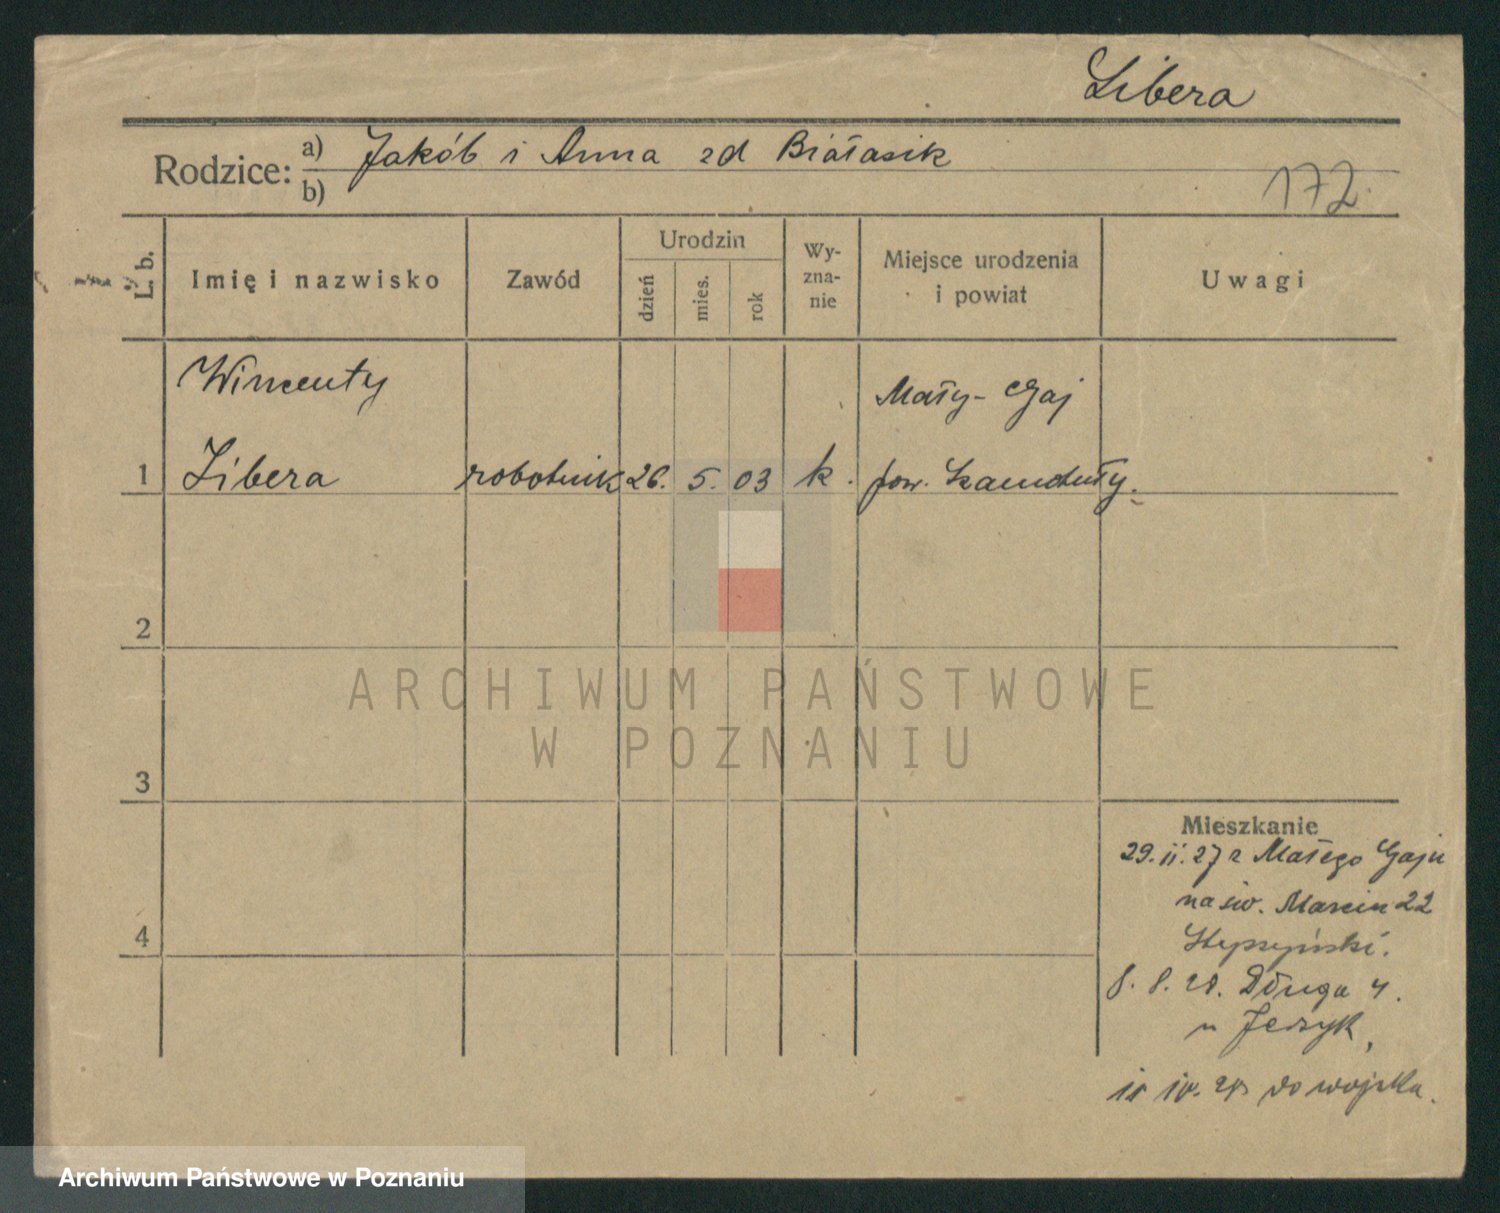 Libera
Rodzice: a) Jakób i Anna zd Białasik
b)
172
L. b.
Imię i nazwisko
Zawód
Urodzin
dzień
mies.
rok
Wy-
zna-
nie
Miejsce urodzenia
i powiat
Uwagi
Wincenty
Mały-Gaj
1 Libera robotnik 26. 5. 03 k. pow. Szamotuły.
2
3
4
Mieszkanie
29. ii. 27 z Małego Gaju
na św. Marcin 22
8. 8. 28. Długa 4.
u Jerzyk,
do wojska.
ARCHIWUM PAŃSTWOWE
W POZNANIU
Archiwum Państwowe w Poznaniu